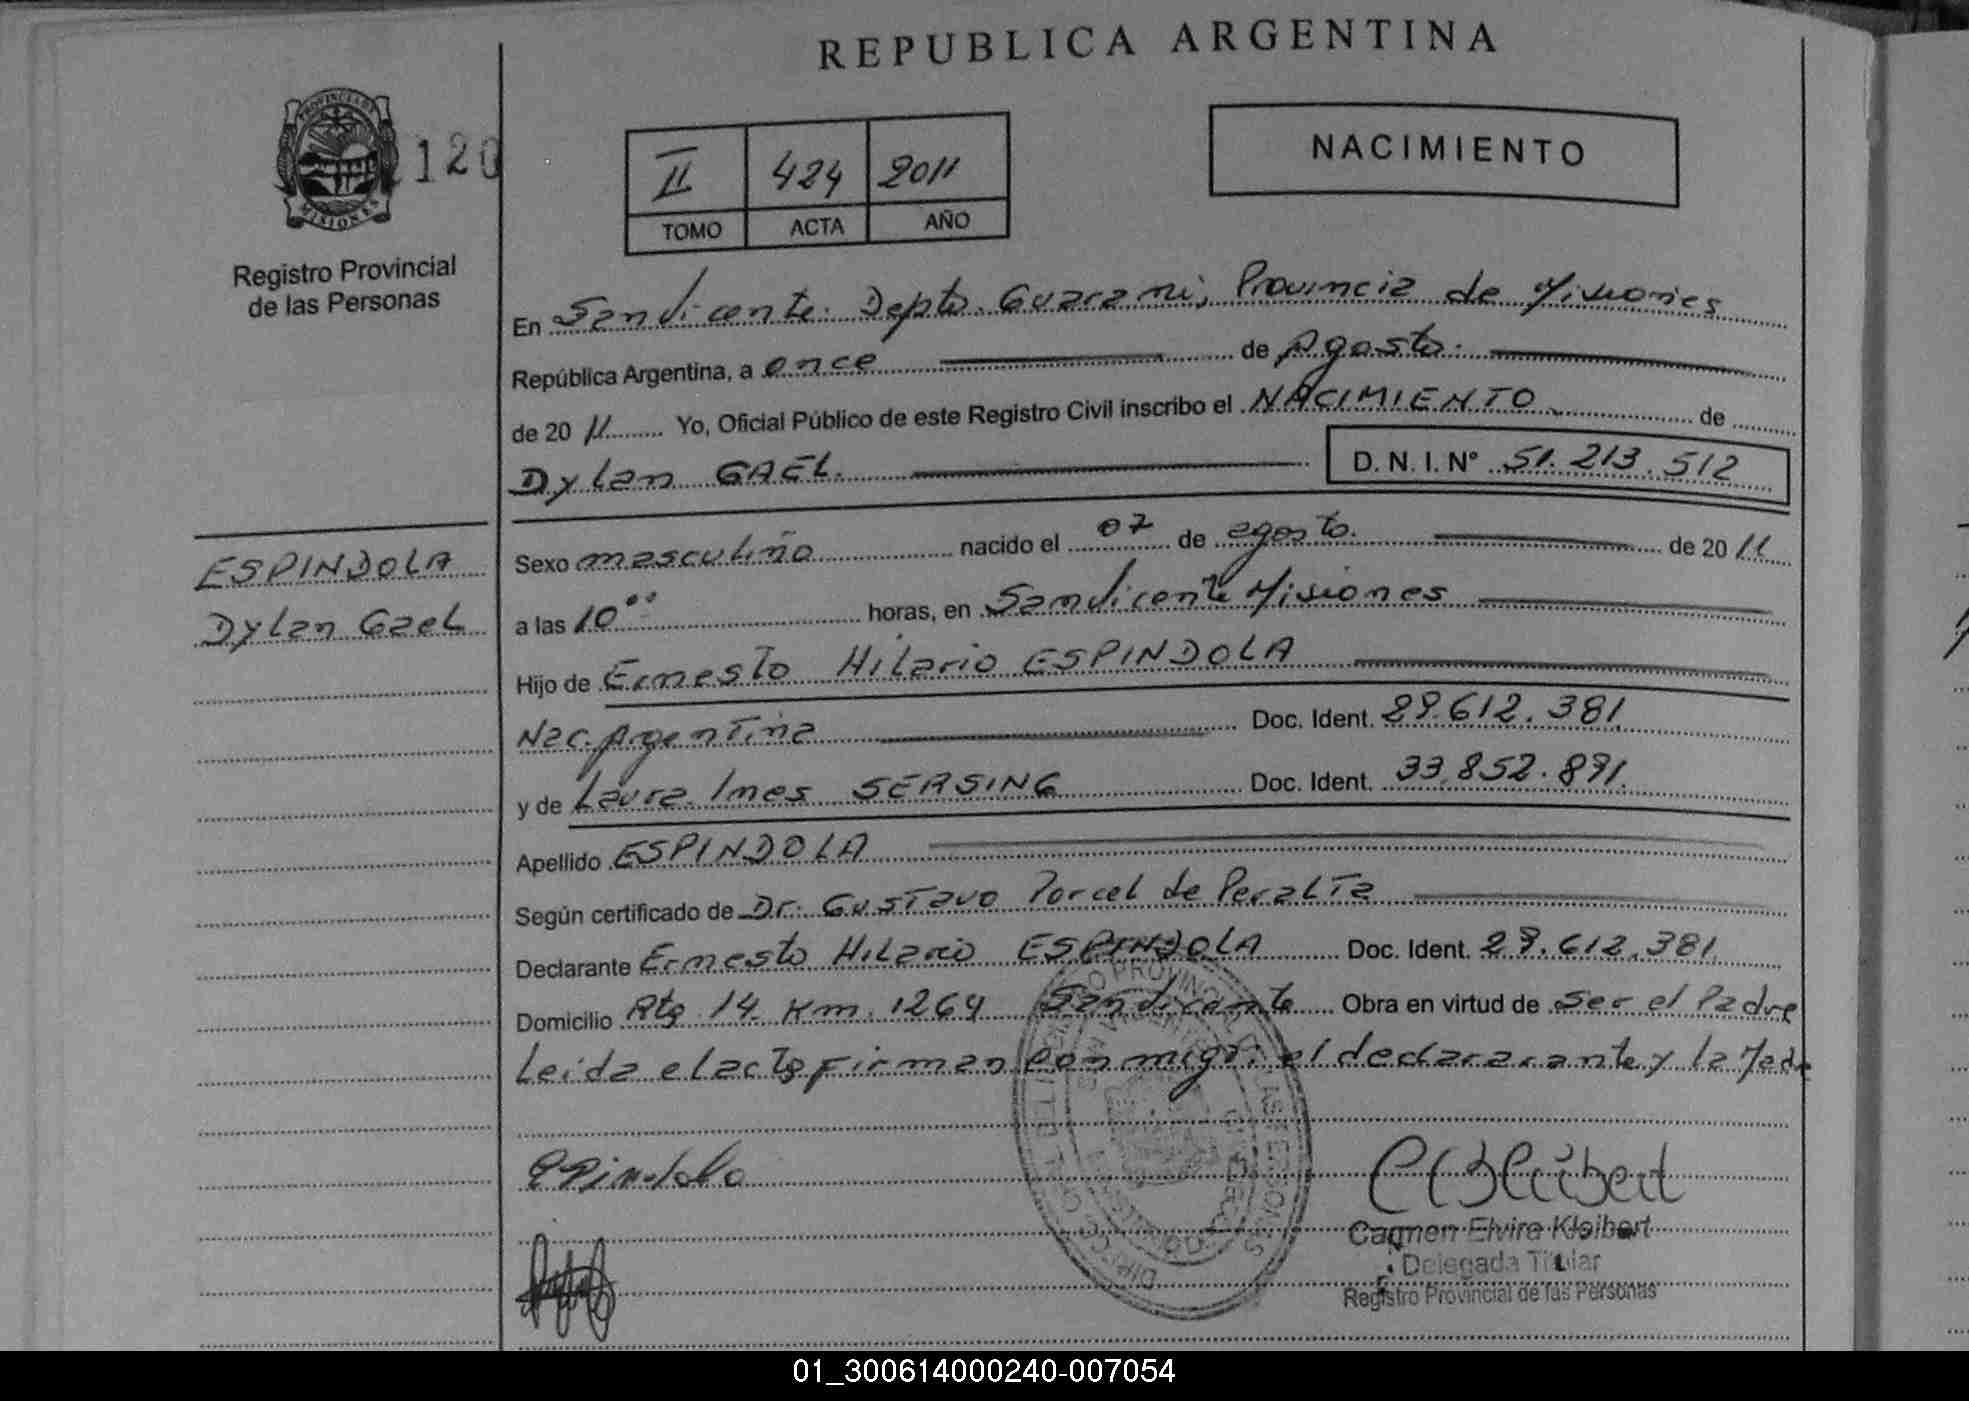 REPUBLICA ARGENTINA
PROVINCIA DE
MISIONES
120
Registro Provincial
de las Personas
II 424 2011
TOMO ACTA AÑO
NACIMIENTO
En San Vicente. Depto. Guarani, Provincia de Misiones
República Argentina, a once de Agosto.
de 20 11 Yo, Oficial Público de este Registro Civil inscribo el NACIMIENTO de
Dylan GAEL. D. N. I. N° 51.213.512
ESPINDOLA
Dylan Gael
Sexo masculino nacido el 07 de agosto. de 20 11
a las 10 00 horas, en San Vicente Misiones
Hijo de Ernesto Hilario ESPINDOLA
Nac. Argentina Doc. Ident. 29.612.381
y de Laura Ines SERSING Doc. Ident. 33.852.891.
Apellido ESPINDOLA
Según certificado de Dr. Gustavo Porcel de Peralta
Declarante Ernesto Hilario ESPINDOLA Doc. Ident. 29.612.381
Domicilio Rta 14 Km. 1264 San Vicente Obra en virtud de Ser el Padre
Leida el acta firman conmigo: el declararante y la Madre
Espindola
Carmen Elvira Kleibert
Delegada Titular
Registro Provincial de las Personas
01_300614000240-007054